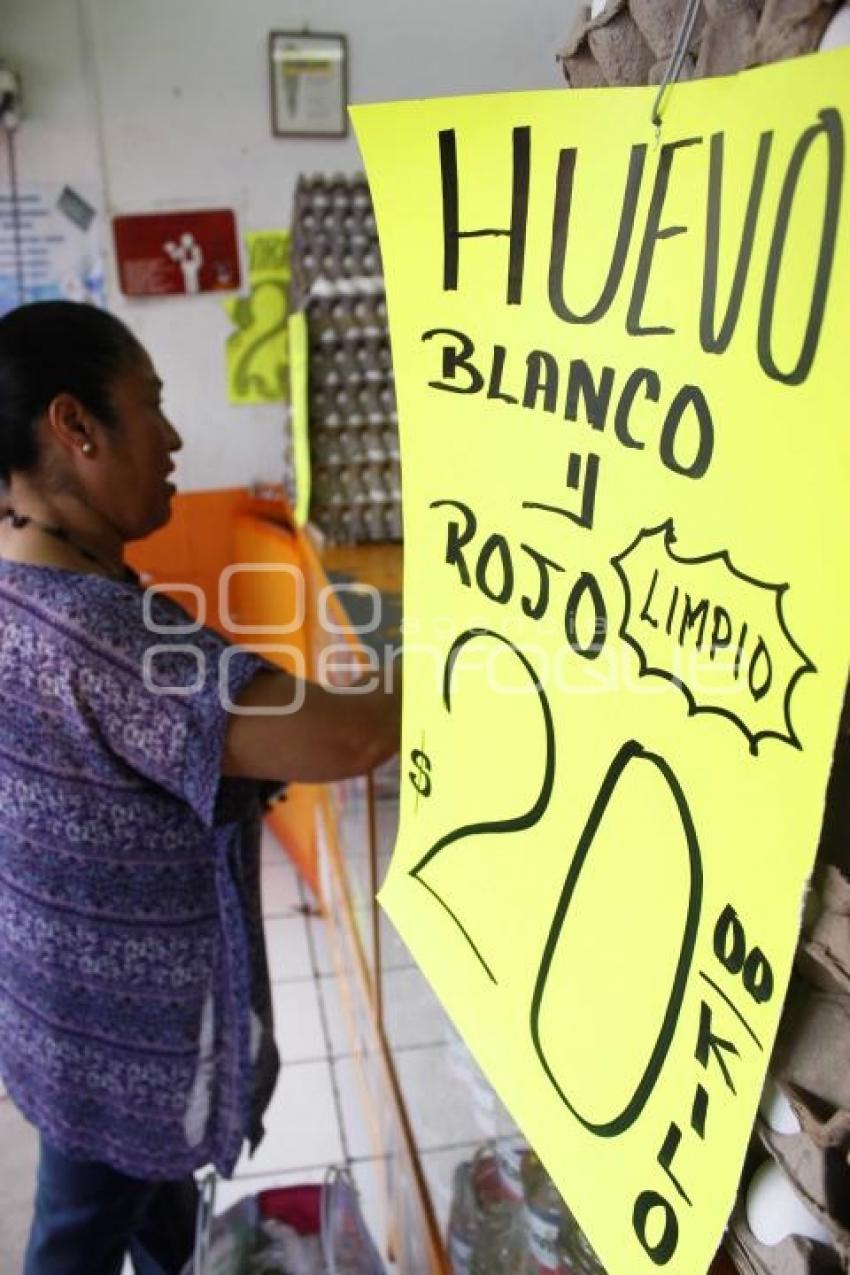 HUEVO
BLANCO
Y
ROJO
LIMPIO
$ 20 00
KILO
agencia
enfoque